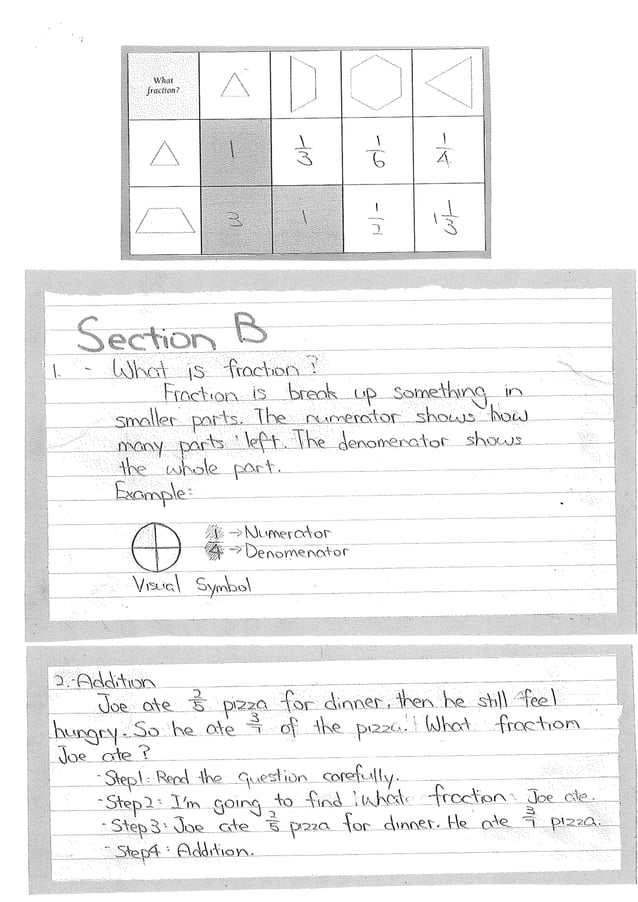 What
fraction?
1 1/3 1/6 1/4
3 1 1/2 1 1/3
Section B
1. - What is fraction?
Fraction is break up something in
smaller parts. The numerator shows how
many parts left. The denomerator shows
the whole part.
Example:
1 → Numerator
4 → Denomenator
Visual Symbol
2.-Addition
Joe ate 2/5 pizza for dinner, then he still feel
hungry. So he ate 3/7 of the pizza. What fraction
Joe ate?
-Step1: Read the question carefully.
-Step2: I'm going to find what fraction Joe ate.
-Step3: Joe ate 2/5 pizza for dinner. He ate 3/7 pizza.
-Step4: Addition.